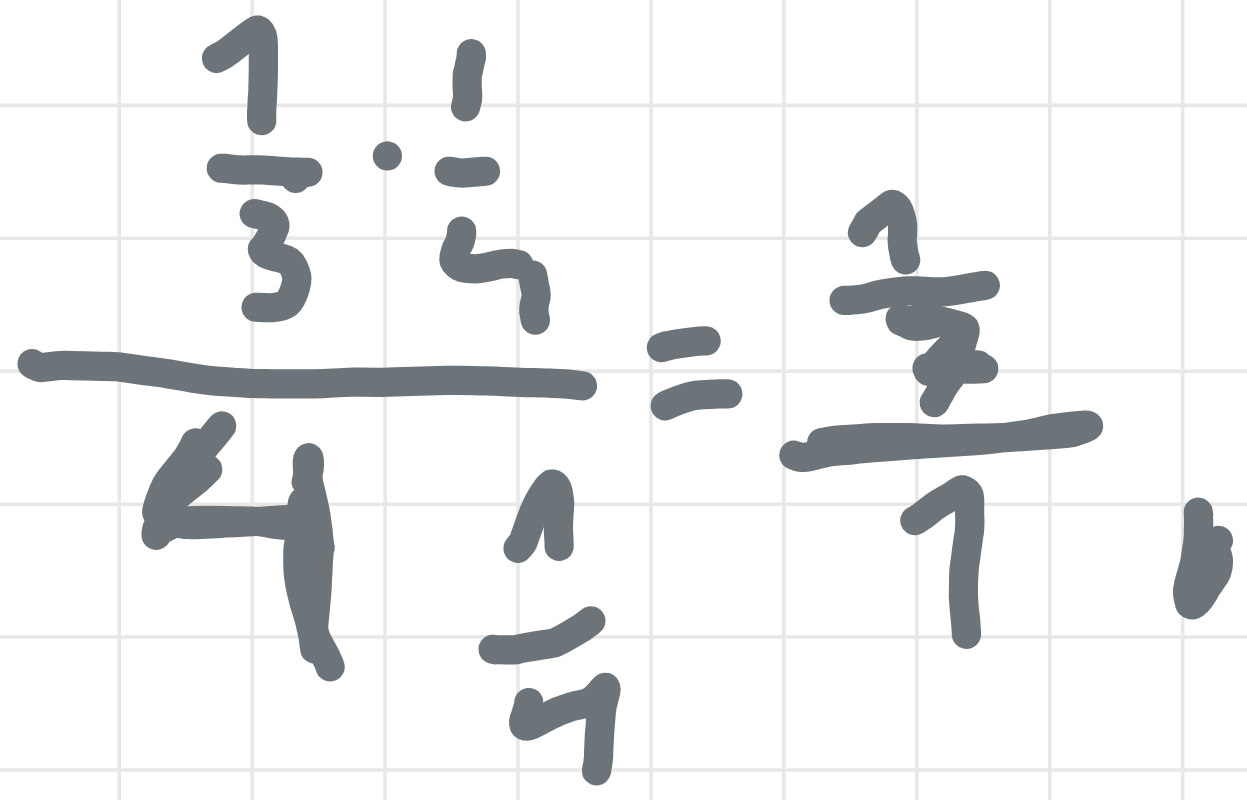 1/3 · 1/4
4 1/4
=
1/7
1